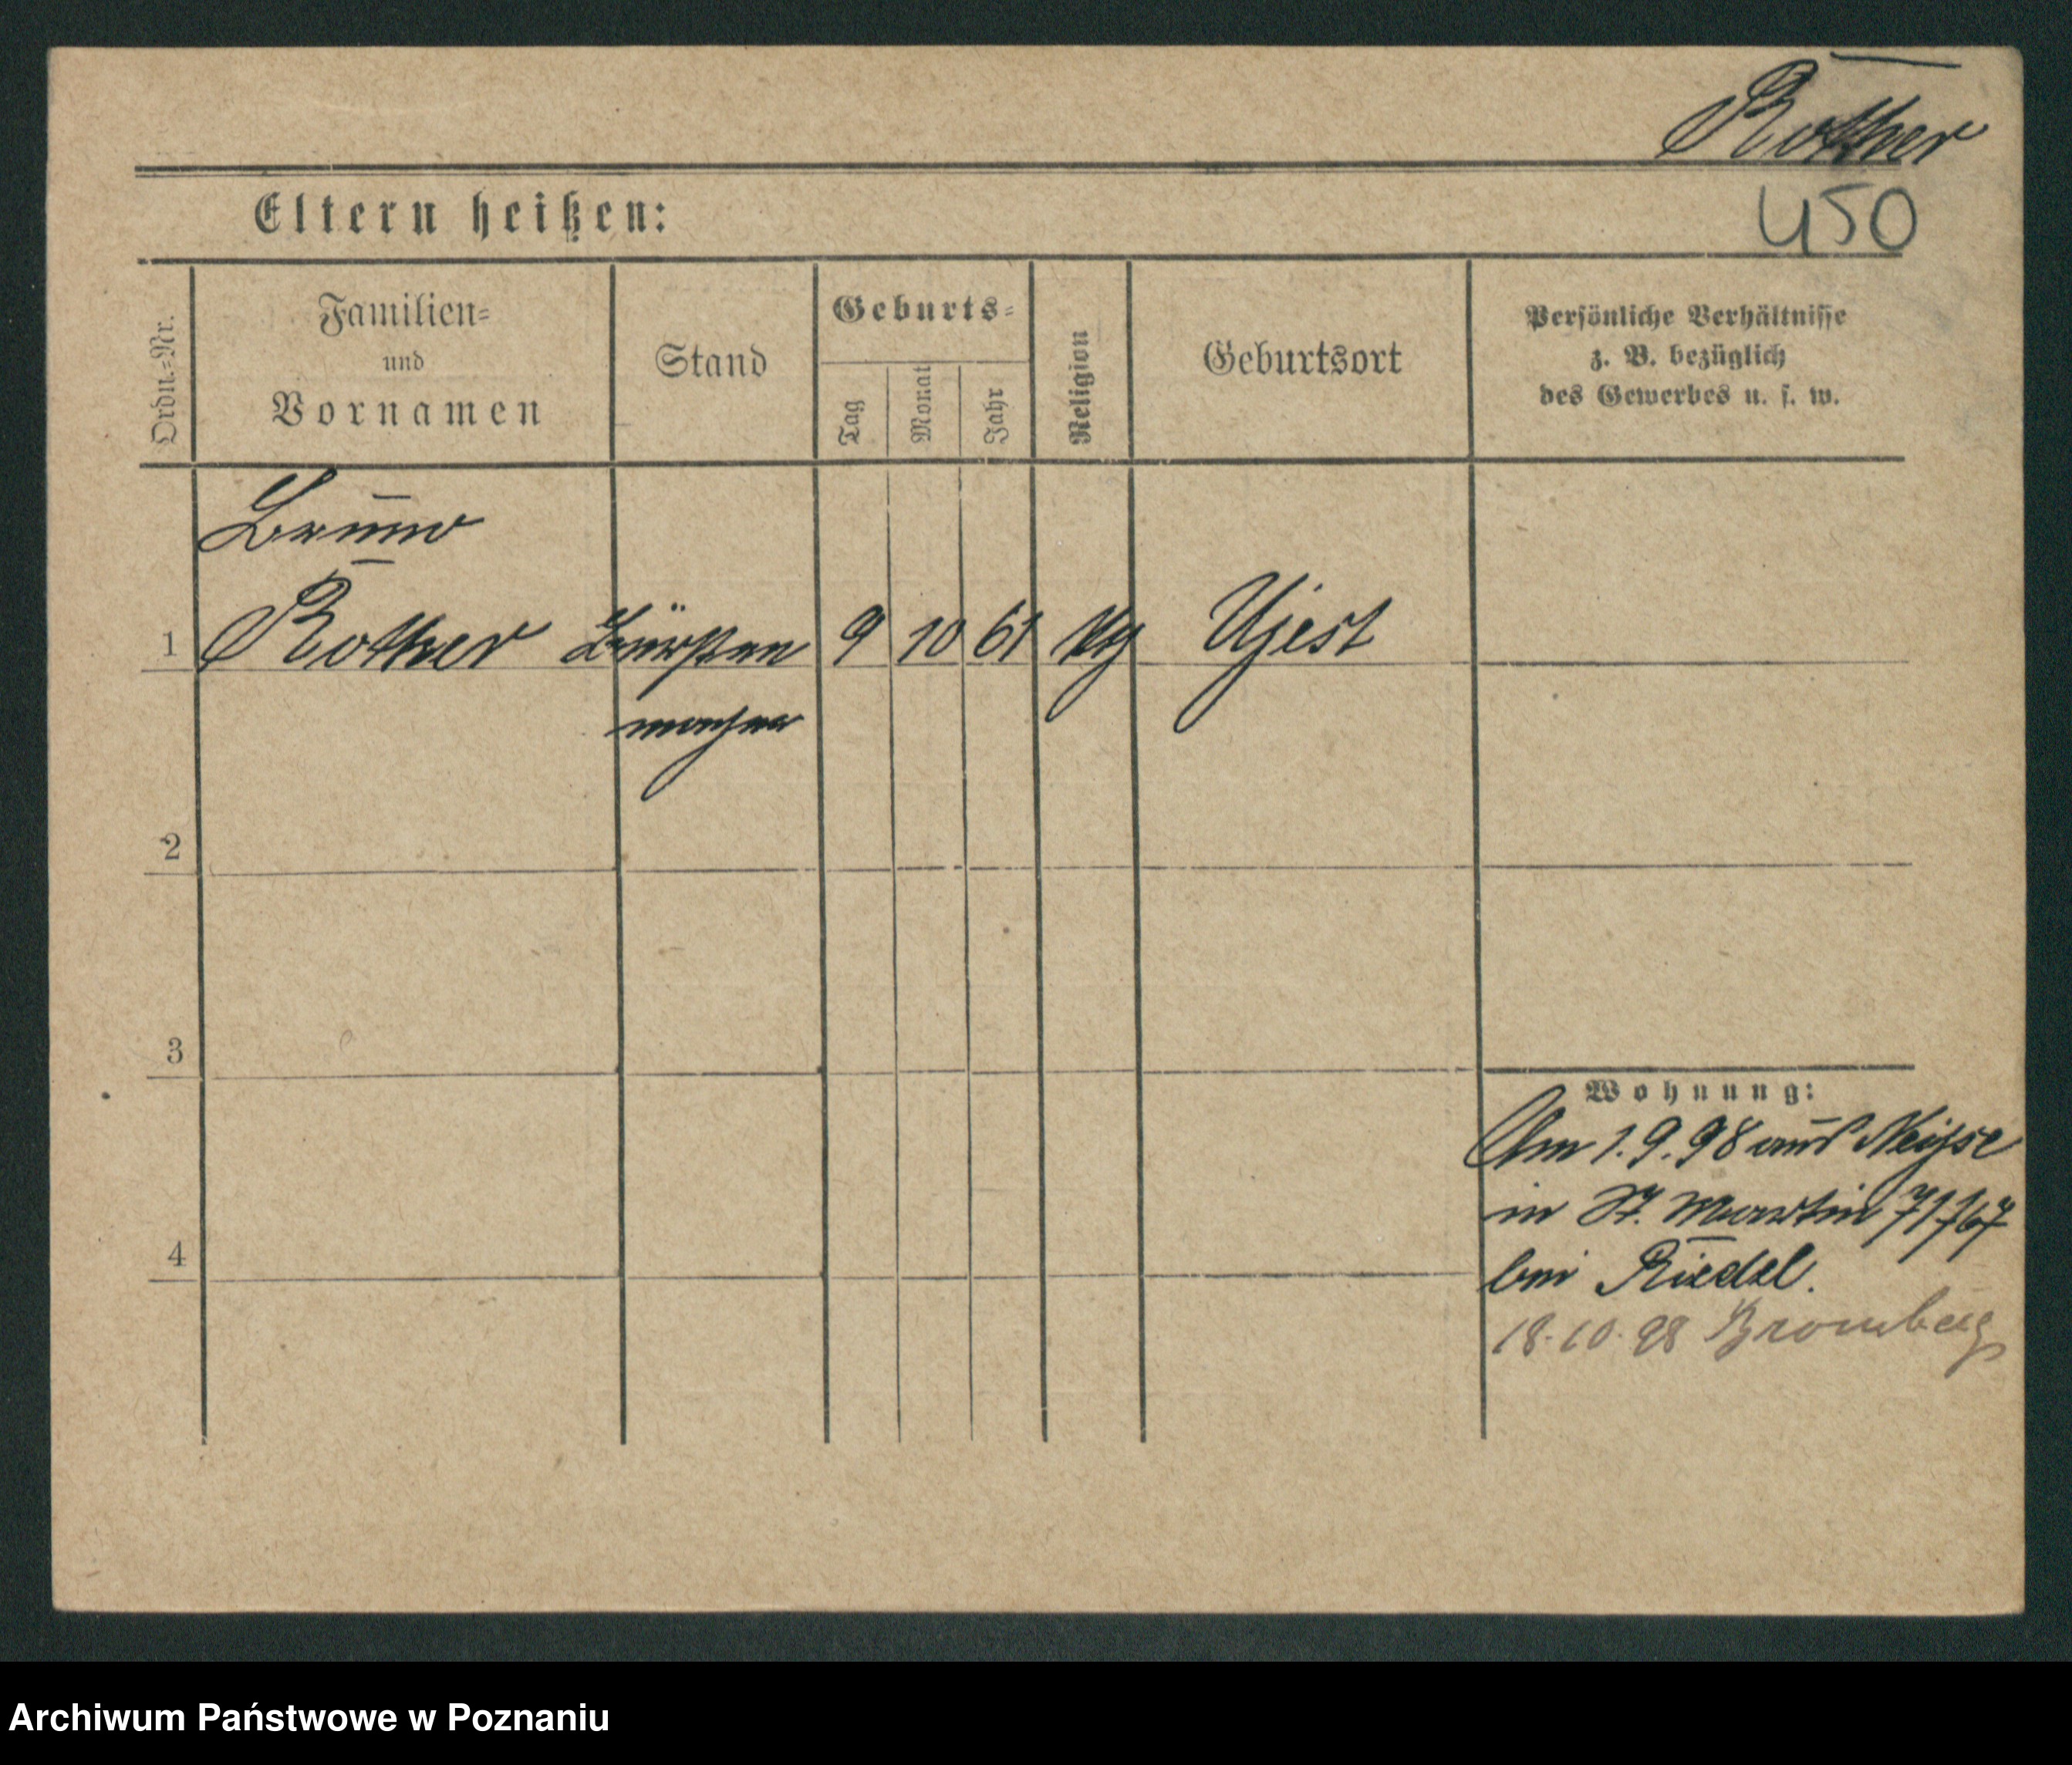 Rother
Eltern heißen:
450
Ordn.=Nr.
Familien=
und
Vornamen
Stand
Geburts=
Tag
Monat
Jahr
Religion
Geburtsort
Persönliche Verhältnisse
z. B. bezüglich
des Gewerbes u. s. w.
Bruno
1 Rother Bürsten 9 10 61 Ujest
macher
2
3
4
Wohnung:
Am 1.9.98 aus Neisse
in St. Martin 71/67
bei Riedel.
18.10.98 Bromberg
Archiwum Państwowe w Poznaniu